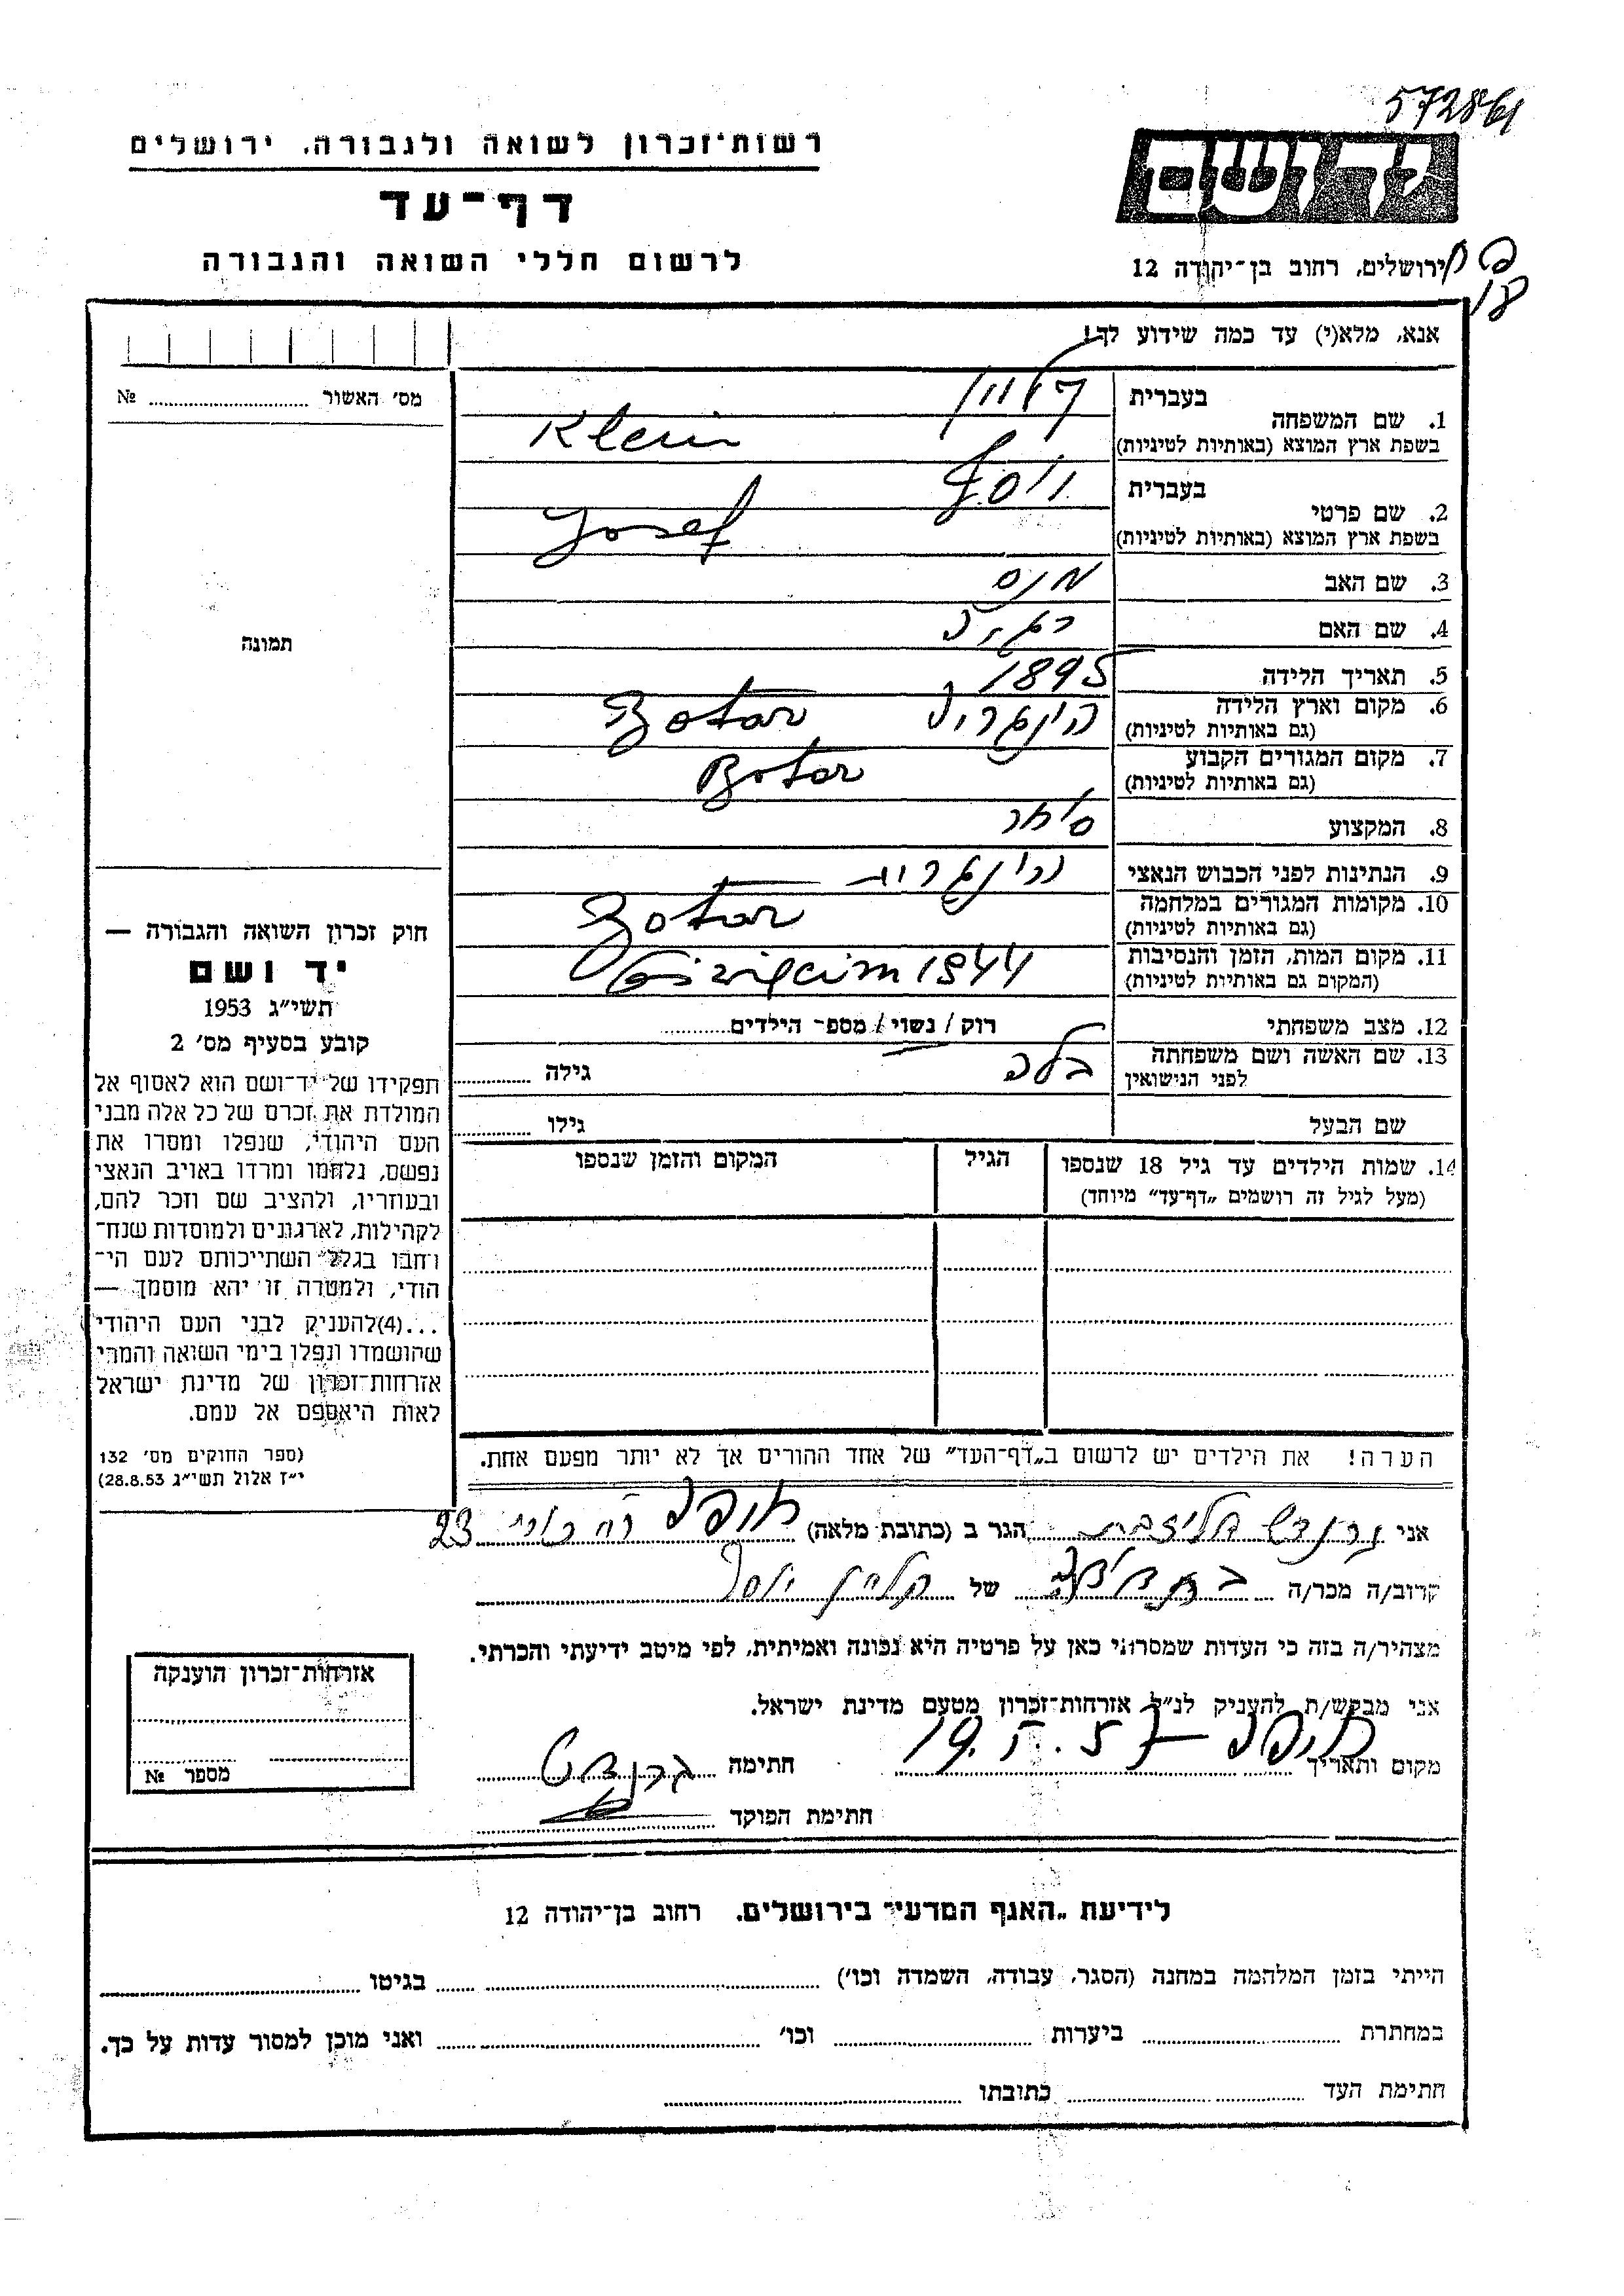 572861
רשות־זכרון לשואה ולגבורה, ירושלים
דף־עד
לרשום חללי השואה והגבורה
ידושם
ירושלים, רחוב בן־יהודה 12
18
אנא, מלא(י) עד כמה שידוע לך!
מס׳ האשור № 
1. שם המשפחה
בעברית קליין
בשפת ארץ המוצא (באותיות לטיניות) Klein
2. שם פרטי
בעברית יוסף
בשפת ארץ המוצא (באותיות לטיניות) Josef
3. שם האב
4. שם האם
5. תאריך הלידה 1895
6. מקום וארץ הלידה הונגריה Botar
(גם באותיות לטיניות)
7. מקום המגורים הקבוע Botar
(גם באותיות לטיניות)
8. המקצוע סוחר
9. הנתינות לפני הכבוש הנאצי הונגרית
10. מקומות המגורים במלחמה Botar
(גם באותיות לטיניות)
11. מקום המות, הזמן והנסיבות 1944
(המקום גם באותיות לטיניות)
12. מצב משפחתי רוק / נשוי / מספר הילדים
13. שם האשה ושם משפחתה גילה
לפני הנישואין
שם הבעל גילו
14. שמות הילדים עד גיל 18 שנספו הגיל המקום והזמן שנספו
(מעל לגיל זה רושמים „דף־עד״ מיוחד)
הערה! את הילדים יש לרשום ב„דף־העד״ של אחד ההורים אך לא יותר מפעם אחת.
תמונה
חוק זכרון השואה והגבורה —
יד ושם
תשי״ג 1953
קובע בסעיף מס׳ 2
תפקידו של יד־ושם הוא לאסוף אל
המולדת את זכרם של כל אלה מבני
העם היהודי, שנפלו ומסרו את
נפשם, נלחמו ומרדו באויב הנאצי
ובעוזריו, ולהציב שם וזכר להם,
לקהילות, לארגונים ולמוסדות שנח־
רבו בגלל השתייכותם לעם הי־
הודי, ולמטרה זו יהא מוסמך —
...(4)להעניק לבני העם היהודי
שהושמדו ונפלו בימי השואה והמרי
אזרחות־זכרון של מדינת ישראל
לאות היאספם אל עמם.
(ספר החוקים מס׳ 132
י״ז אלול תשי״ג 28.8.53)
אני הגר ב (כתובת מלאה) חיפה 23
קרוב/ה מכר/ה של קליין יוסף
מצהיר/ה בזה כי העדות שמסרתי כאן על פרטיה היא נכונה ואמיתית, לפי מיטב ידיעתי והכרתי.
אני מבקש/ת להעניק לנ״ל אזרחות־זכרון מטעם מדינת ישראל.
מקום ותאריך חיפה 19.5.57 חתימה
חתימת הפוקד
אזרחות־זכרון הוענקה
מספר №
לידיעת „האגף המדעי״ בירושלים. רחוב בן־יהודה 12
הייתי בזמן המלחמה במחנה (הסגר, עבודה, השמדה וכו׳) בגיטו
במחתרת ביערות וכו׳ ואני מוכן למסור עדות על כך.
חתימת העד כתובתו